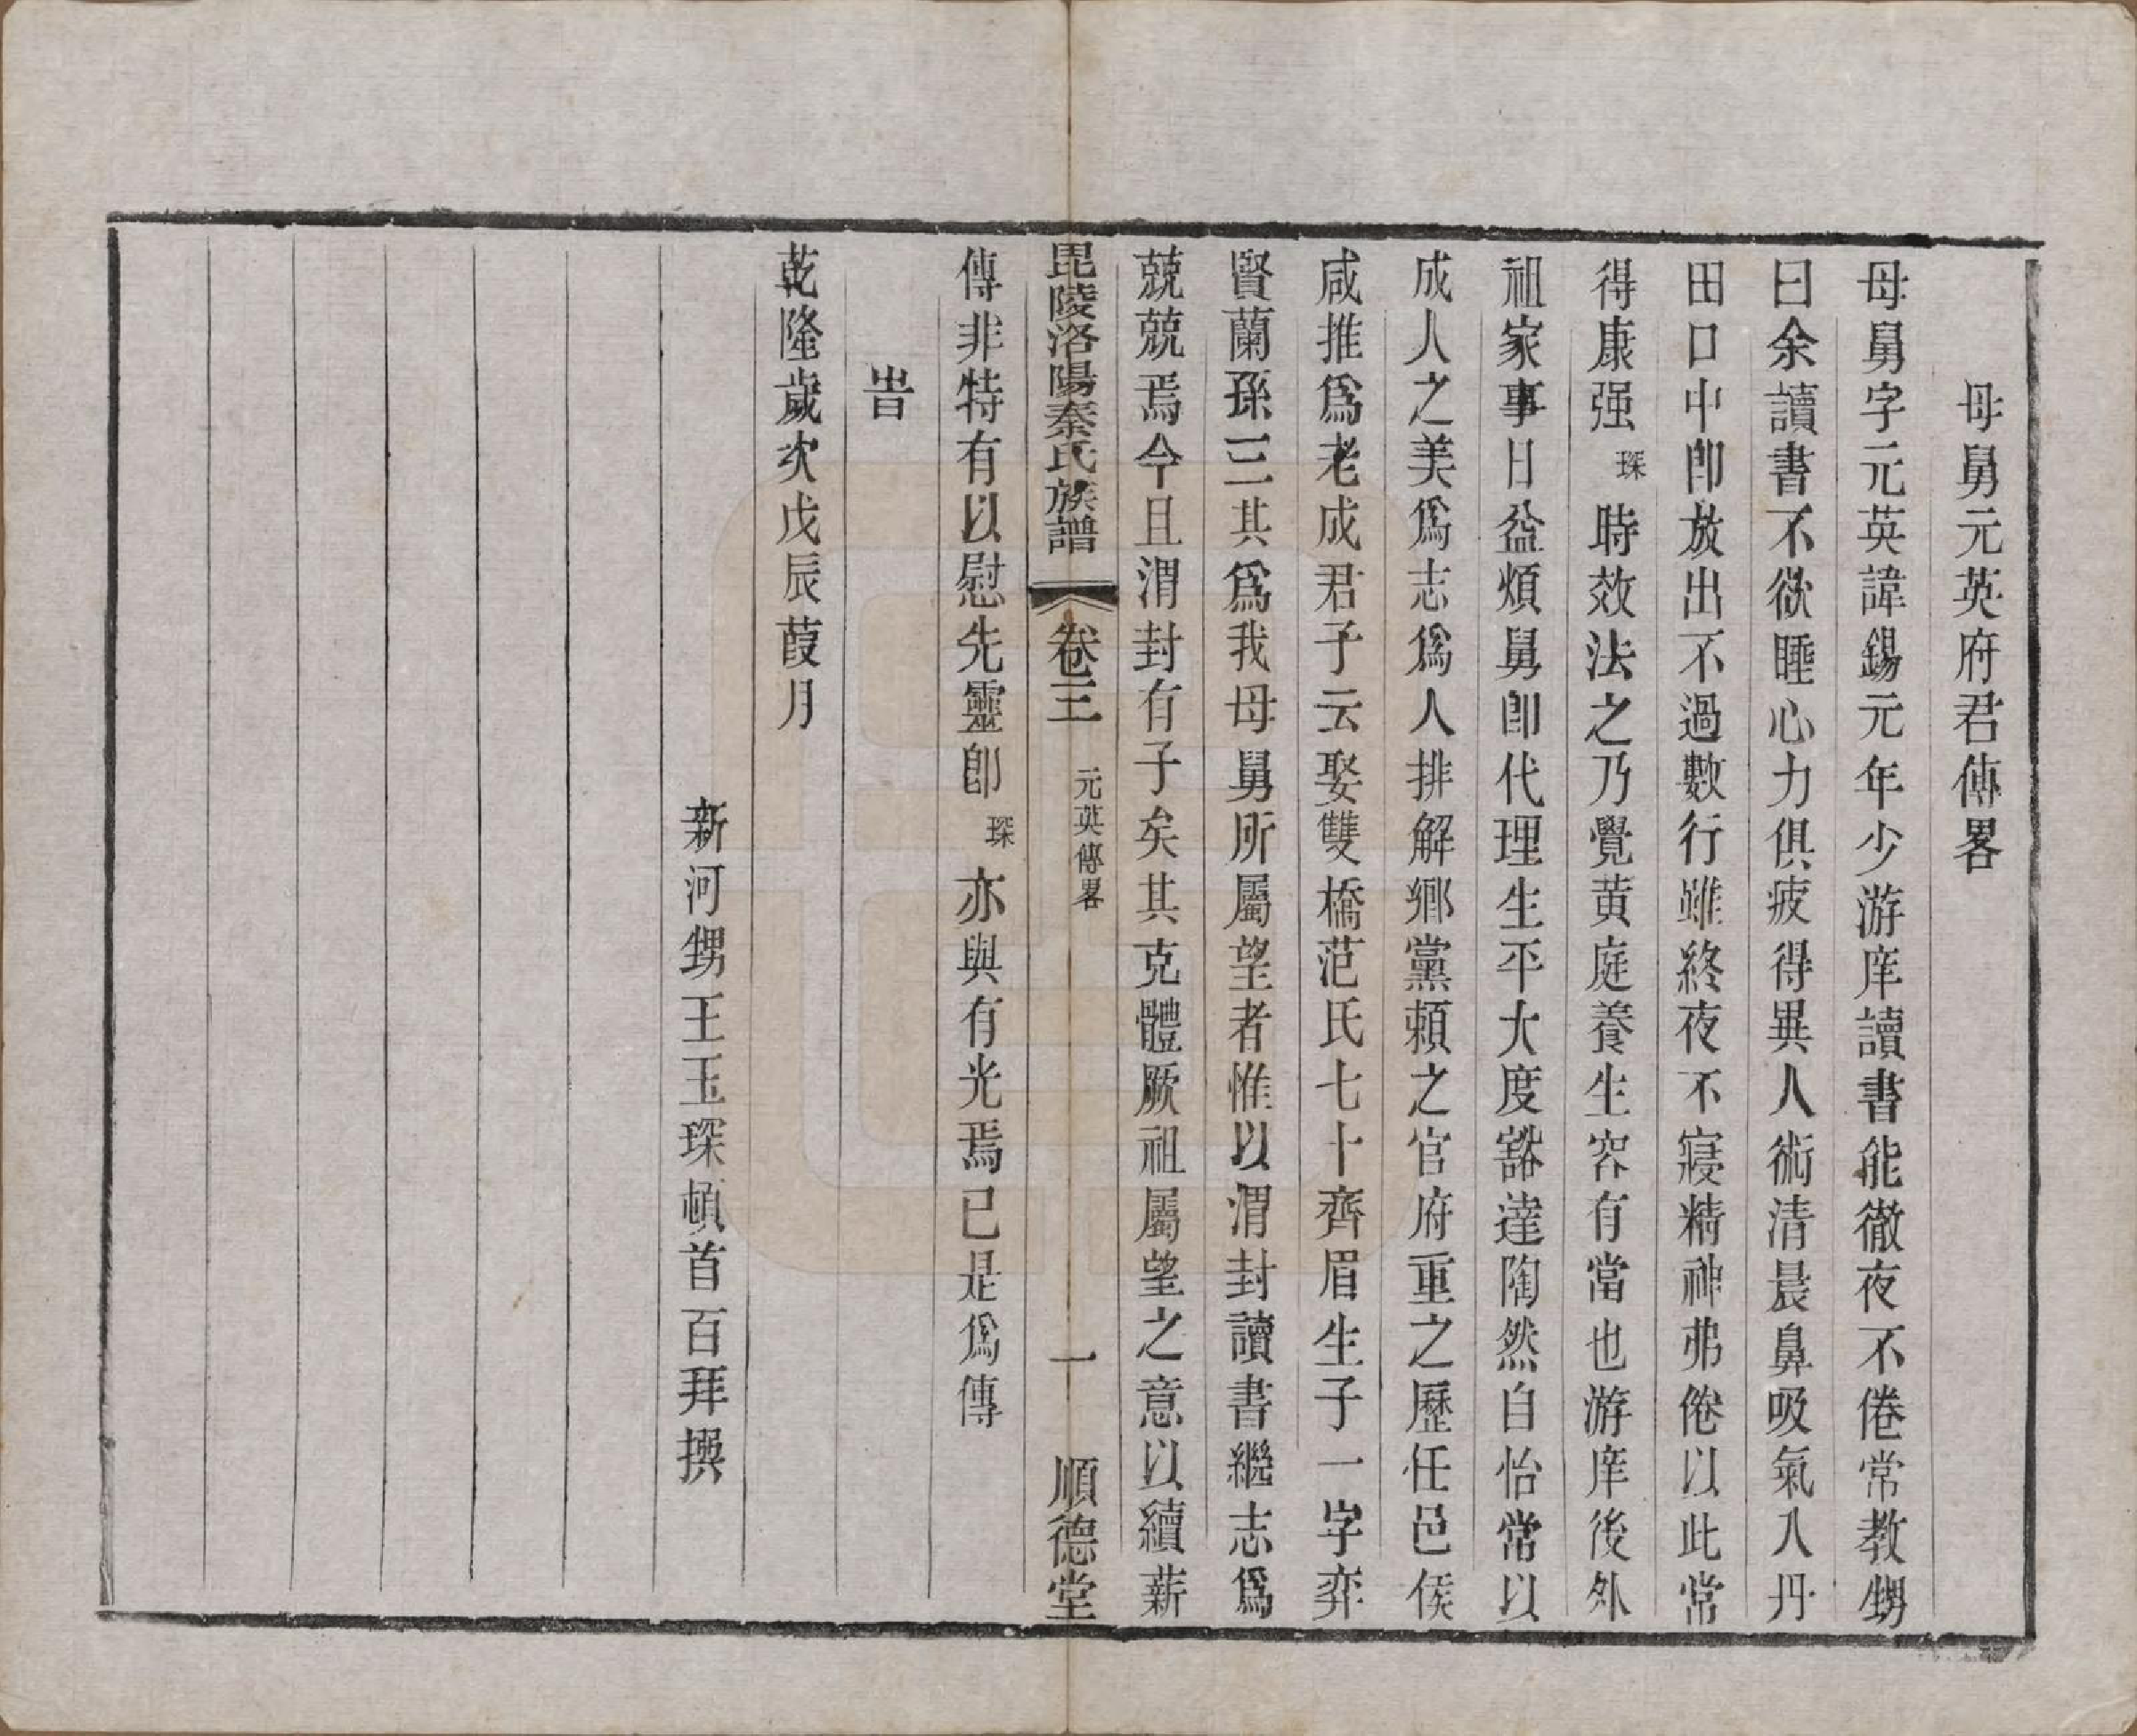 母舅元英府君傳畧
母舅字元英諱錫元年少游庠讀書能徹夜不倦常教甥
曰余讀書不欲睡心力俱疲得異人術清晨鼻吸氣入丹
田口中卽放出不過數行雖終夜不寢精神弗倦以此常
得康强琛時效法之乃覺黄庭養生容有當也游庠後外
祖家事日益煩舅卽代理生平大度豁達陶然自怡常以
成人之美爲志爲人排解鄉黨賴之官府重之歷任邑侯
咸推爲老成君子云娶雙橋范氏七十齊眉生子一字弈
賢蘭孫三其爲我母舅所屬望者惟以渭封讀書繼志爲
兢兢焉今且渭封有子矣其克體厥祖屬望之意以續薪
毘陵洛陽秦氏族譜 卷三 元英傳畧 一 順德堂
傳非特有以慰先靈卽琛亦與有光焉已是爲傳
旹
乾隆歲次戊辰葭月
新河甥王玉琛頓首百拜撰